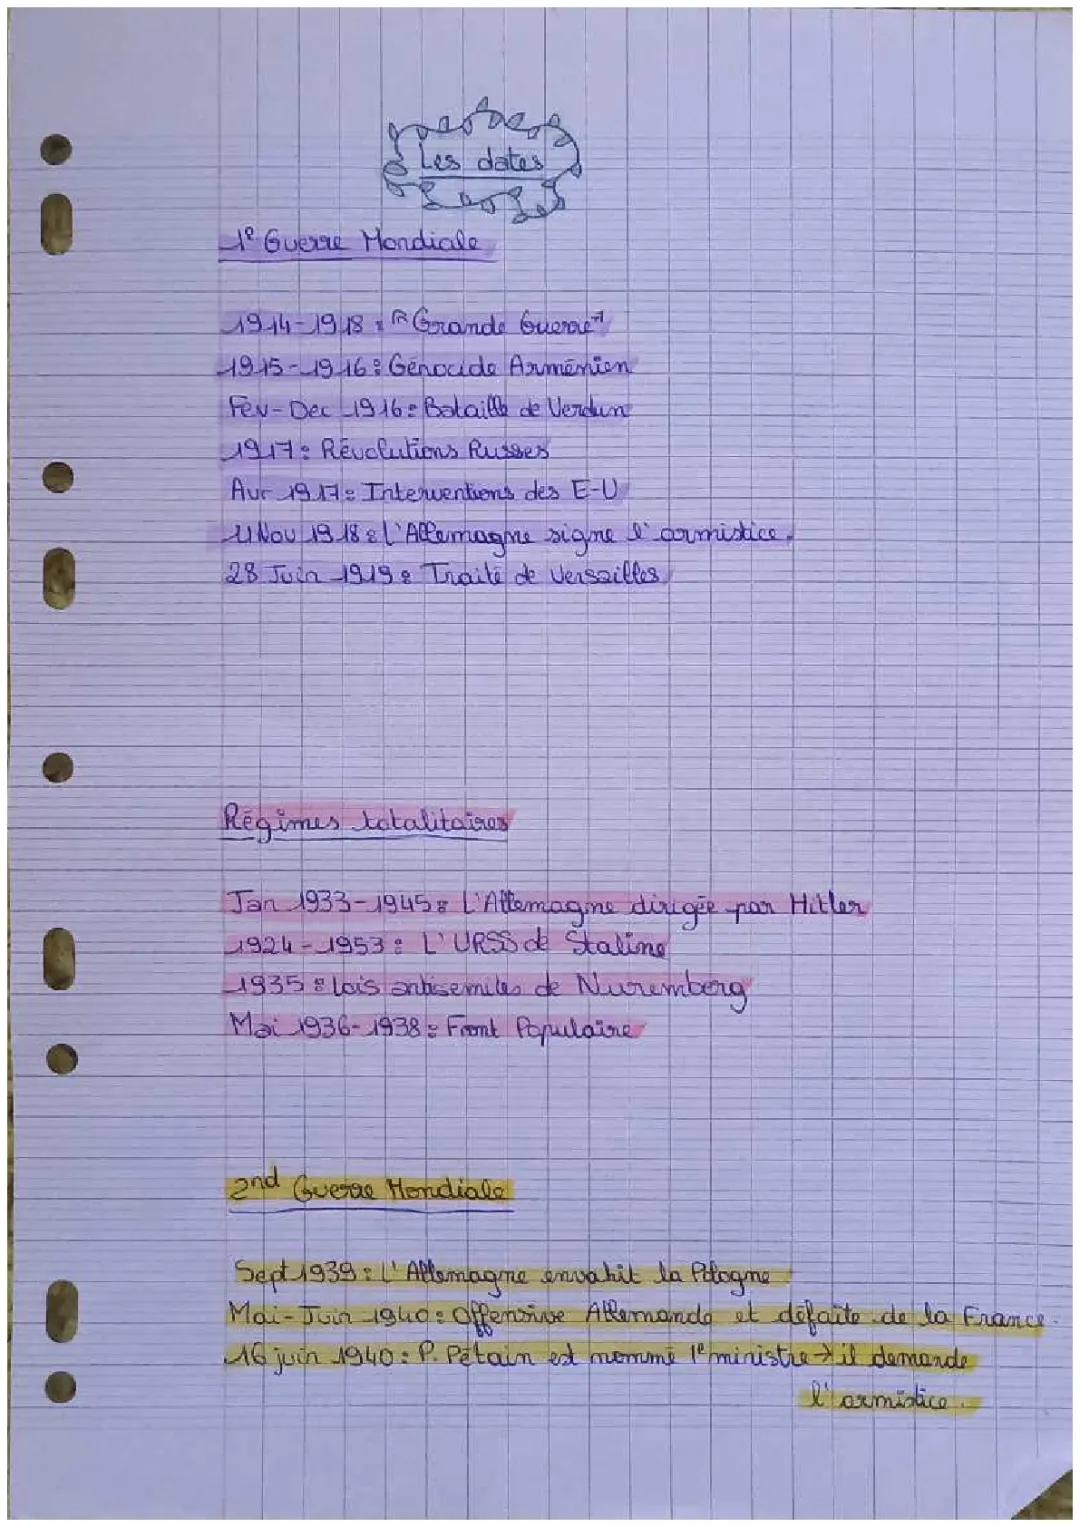 Les dates
1e Guerre Mondiale
1914-1918 : "Grande Guerre"
1915-1916 : Génocide Arménien
Fev-Dec 1916 : Bataille de Verdun
1917 : Révolutions Russes
Avr 1917 : Interventions des E-U
11 Nov 1918 : L'Allemagne signe l'armistice.
28 Juin 1919 : Traité de Versailles
Régimes totalitaires
Jan 1933-1945 : L'Allemagne dirigée par Hitler
1924-1953 : L'URSS de Staline
1935 : lois antisemites de Nuremberg
Mai 1936-1938 : Front Populaire
2nd Guerre Mondiale
Sept 1939 : L'Allemagne envahit la Pologne
Mai-Juin 1940 : Offensive Allemande et défaite de la France.
16 juin 1940 : P. Pétain est nommé 1e ministre → il demande
l'armistice.